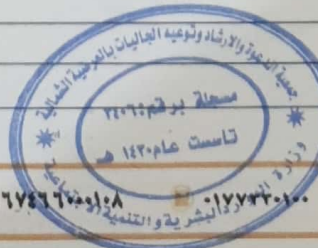 جمعية الدعوة والارشاد وتوعيه الجاليات بالعرضية الشمالية
مسجلة برقم:٣٤٠٦
تأسست عام ١٤٣٠ هـ
وزارة الموارد البشرية والتنمية الاجتماعية
٠١٧٧٢٣٠١٠٠